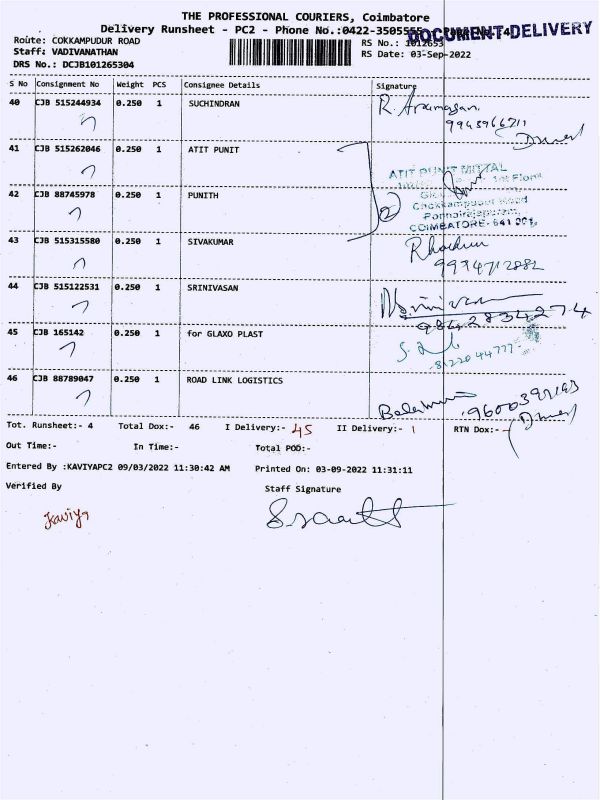 THE PROFESSIONAL COURIERS, Coimbatore
Delivery Runsheet - PC2 - Phone No.:0422-3505555
DOCUMENT-DELIVERY
Route: COKKAMPUDUR ROAD
RS No.: 1012653
Staff: VADIVANATHAN
RS Date: 03-Sep-2022
DRS No.: DCJB101265304
S No Consignment No Weight PCS Consignee Details Signature
40 CJB 515244934 0.250 1 SUCHINDRAN
9943966211
41 CJB 515262046 0.250 1 ATIT PUNIT
ATIT PUNIT MITTAL
1st Floor
42 CJB 88745978 0.250 1 PUNITH
2
Chokkampudur Road
Ponnairajapuram,
COIMBATORE- 641 001.
43 CJB 515315580 0.250 1 SIVAKUMAR
9994712882
44 CJB 515122531 0.250 1 SRINIVASAN
9842834274
45 CJB 165142 0.250 1 for GLAXO PLAST
8122044777
46 CJB 88789047 0.250 1 ROAD LINK LOGISTICS
Tot. Runsheet:- 4 Total Dox:- 46 I Delivery:- 45 II Delivery:- 1 RTN Dox:- -
Out Time:- In Time:- Total POD:-
Entered By :KAVIYAPC2 09/03/2022 11:30:42 AM Printed On: 03-09-2022 11:31:11
Verified By Staff Signature
Kaviya